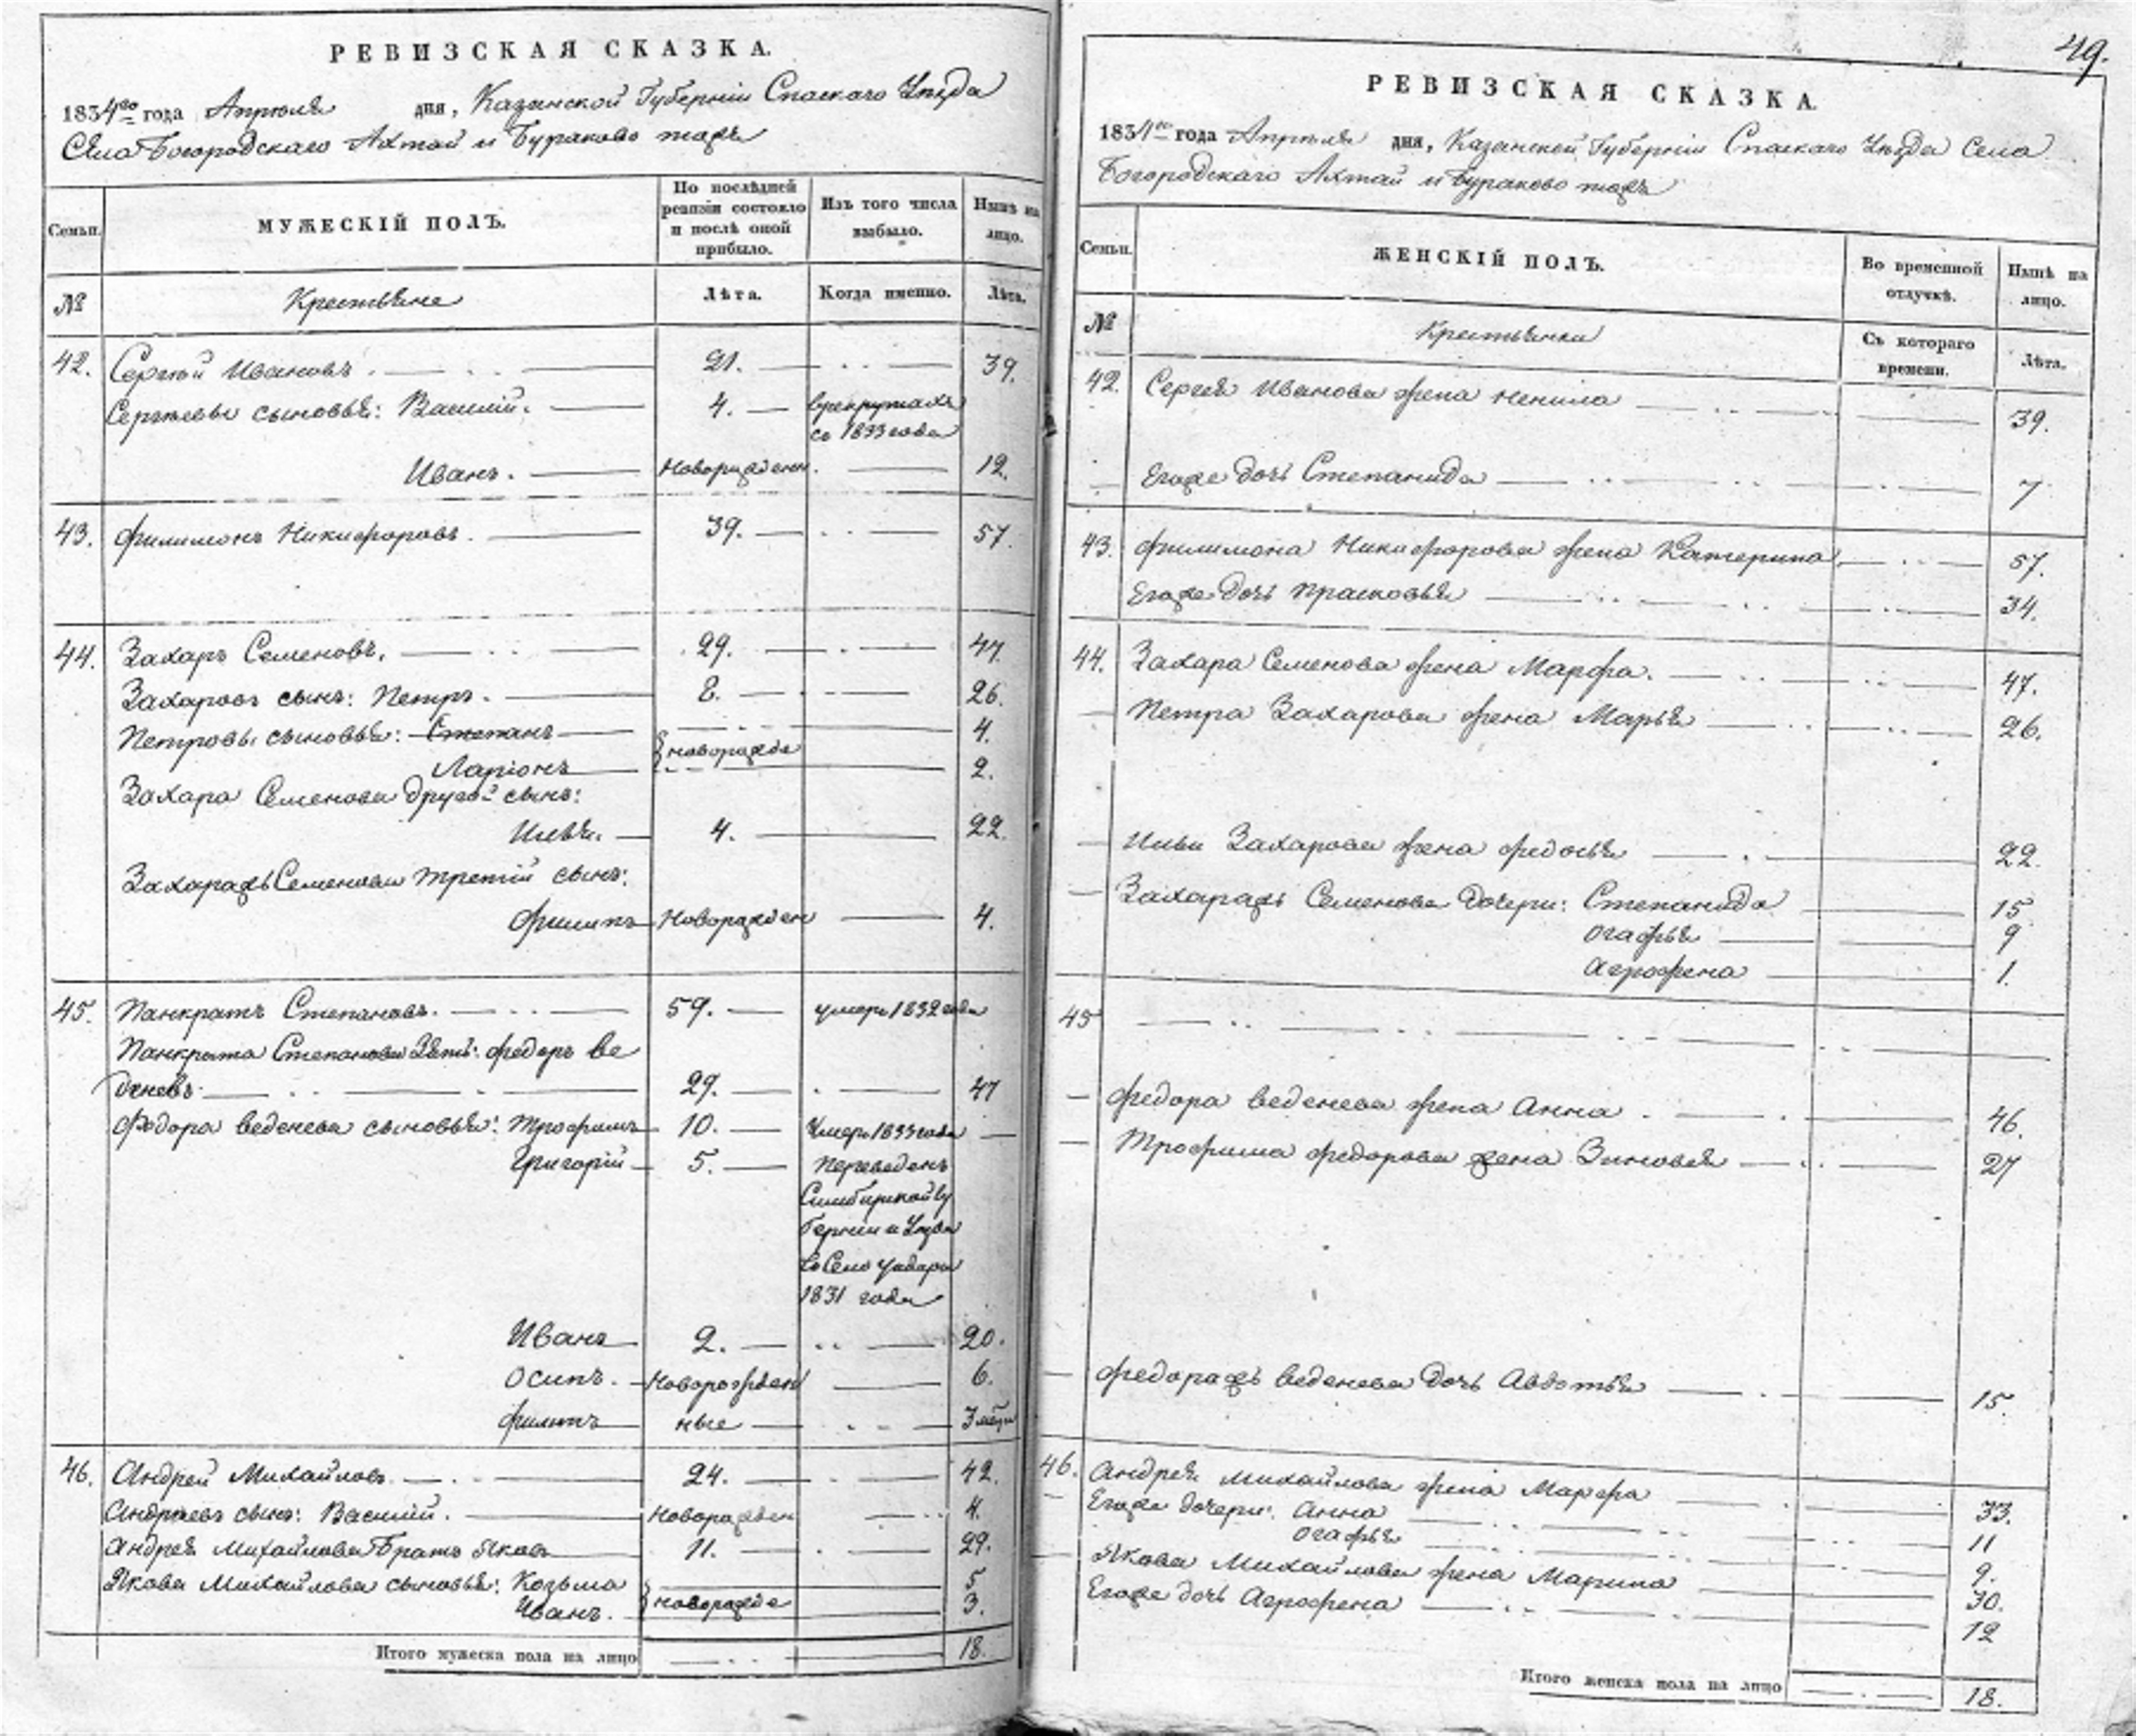 РЕВИЗСКАЯ СКАЗКА.
1834го года Апреля дня, Казанской Губернiи Спаскаго Уезда
Села Богородскаго Ахтай и Бураково тожъ
Семьи.
МУЖЕСКIЙ ПОЛЪ.
По послѣдней ревизiи состояло и послѣ оной прибыло.
Изъ того числа выбыло.
Нынѣ на лицо.
№
Крестьяне
Лѣта.
Когда именно.
Лѣта.
42. Сергѣй Ивановъ. 21. 39.
Сергѣевы сыновья: Василiй. 4. в рекрутахъ
съ 1833 года
Иванъ. Новорожден. 12.
43. Филимонъ Никифоровъ. 39. 57.
44. Захаръ Семеновъ. 29. 47.
Захаровъ сынъ: Петръ. 8. 26.
Петровы сыновья: Степанъ 4.
новорожде
Ларiонъ 2.
Захара Семенова другой сынъ:
Илья. 4. 22.
Захаражъ Семенова третiй сынъ:
Филипъ Новорожден 4.
45. Панкратъ Степановъ. 59. умеръ 1832 года
Панкрата Степанова Зять: Федоръ Ве
деневъ 29. 47
Федора Веденева сыновья: Трофимъ 10. Умеръ 1833 года
Григорiй 5. переведенъ
Симбирской гу
бернiи и Уезда
въ Село
1831 года
Иванъ 2. 20.
Осипъ. Новорожден 6.
Филипъ ные 3 меся
46. Андрей Михайловъ. 24. 42.
Андреевъ сынъ: Василiй. Новорожден 4.
Андрея Михайлова Братъ Яковъ 11. 29.
Якова Михайлова сыновья: Козьма 5
новорожде
Иванъ. 3.
Итого мужеска пола на лицо 18.
49.
РЕВИЗСКАЯ СКАЗКА.
1834го года Апреля дня, Казанской Губернiи Спаскаго Уезда Села
Богородскаго Ахтай и Бураково тожъ
Семьи.
ЖЕНСКIЙ ПОЛЪ.
Во временной отлучкѣ.
Нынѣ на лицо.
№
Крестьянки
Съ котораго времени.
Лѣта.
42. Сергея Иванова жена Ненила 39.
Егоже дочь Степанида 7
43. Филимона Никифорова жена Катерина. 57.
Егоже дочь Прасковья 34.
44. Захара Семенова жена Марфа. 47.
Петра Захарова жена Марья 26.
Ильи Захарова жена Федосья 22.
Захаражъ Семенова дочери: Степанида 15
Огафья 9
Агрофена 1.
45
Федора Веденева жена Анна 46.
Трофима Федорова жена Зиновея 27
Федоражъ Веденева дочь Авдотья 15.
46. Андрея Михайлова жена Марфа 33.
Егоже дочери: Анна 11
Огафья 9.
Якова Михайлова жена Марина 30.
Егоже дочь Агрофена 12
Итого женска пола на лицо 18.